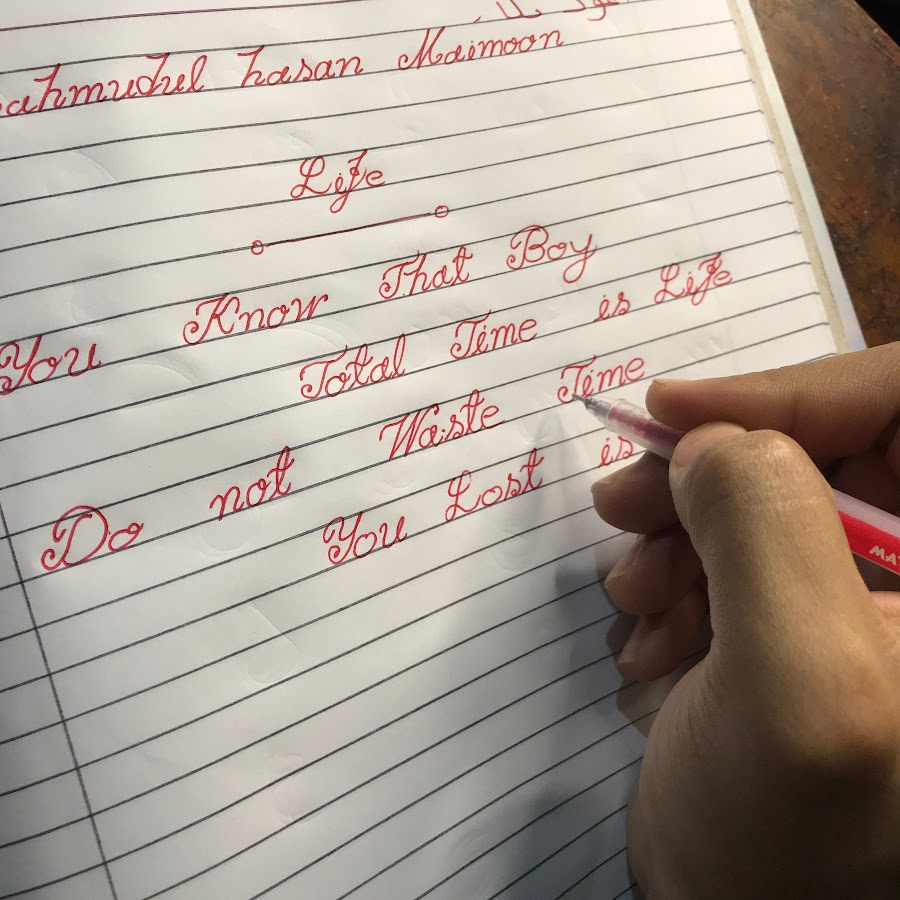 ahmudul hasan Maimoon
Life
You Know That Boy
Total Time is Life
Do not Waste Time
You Lost is